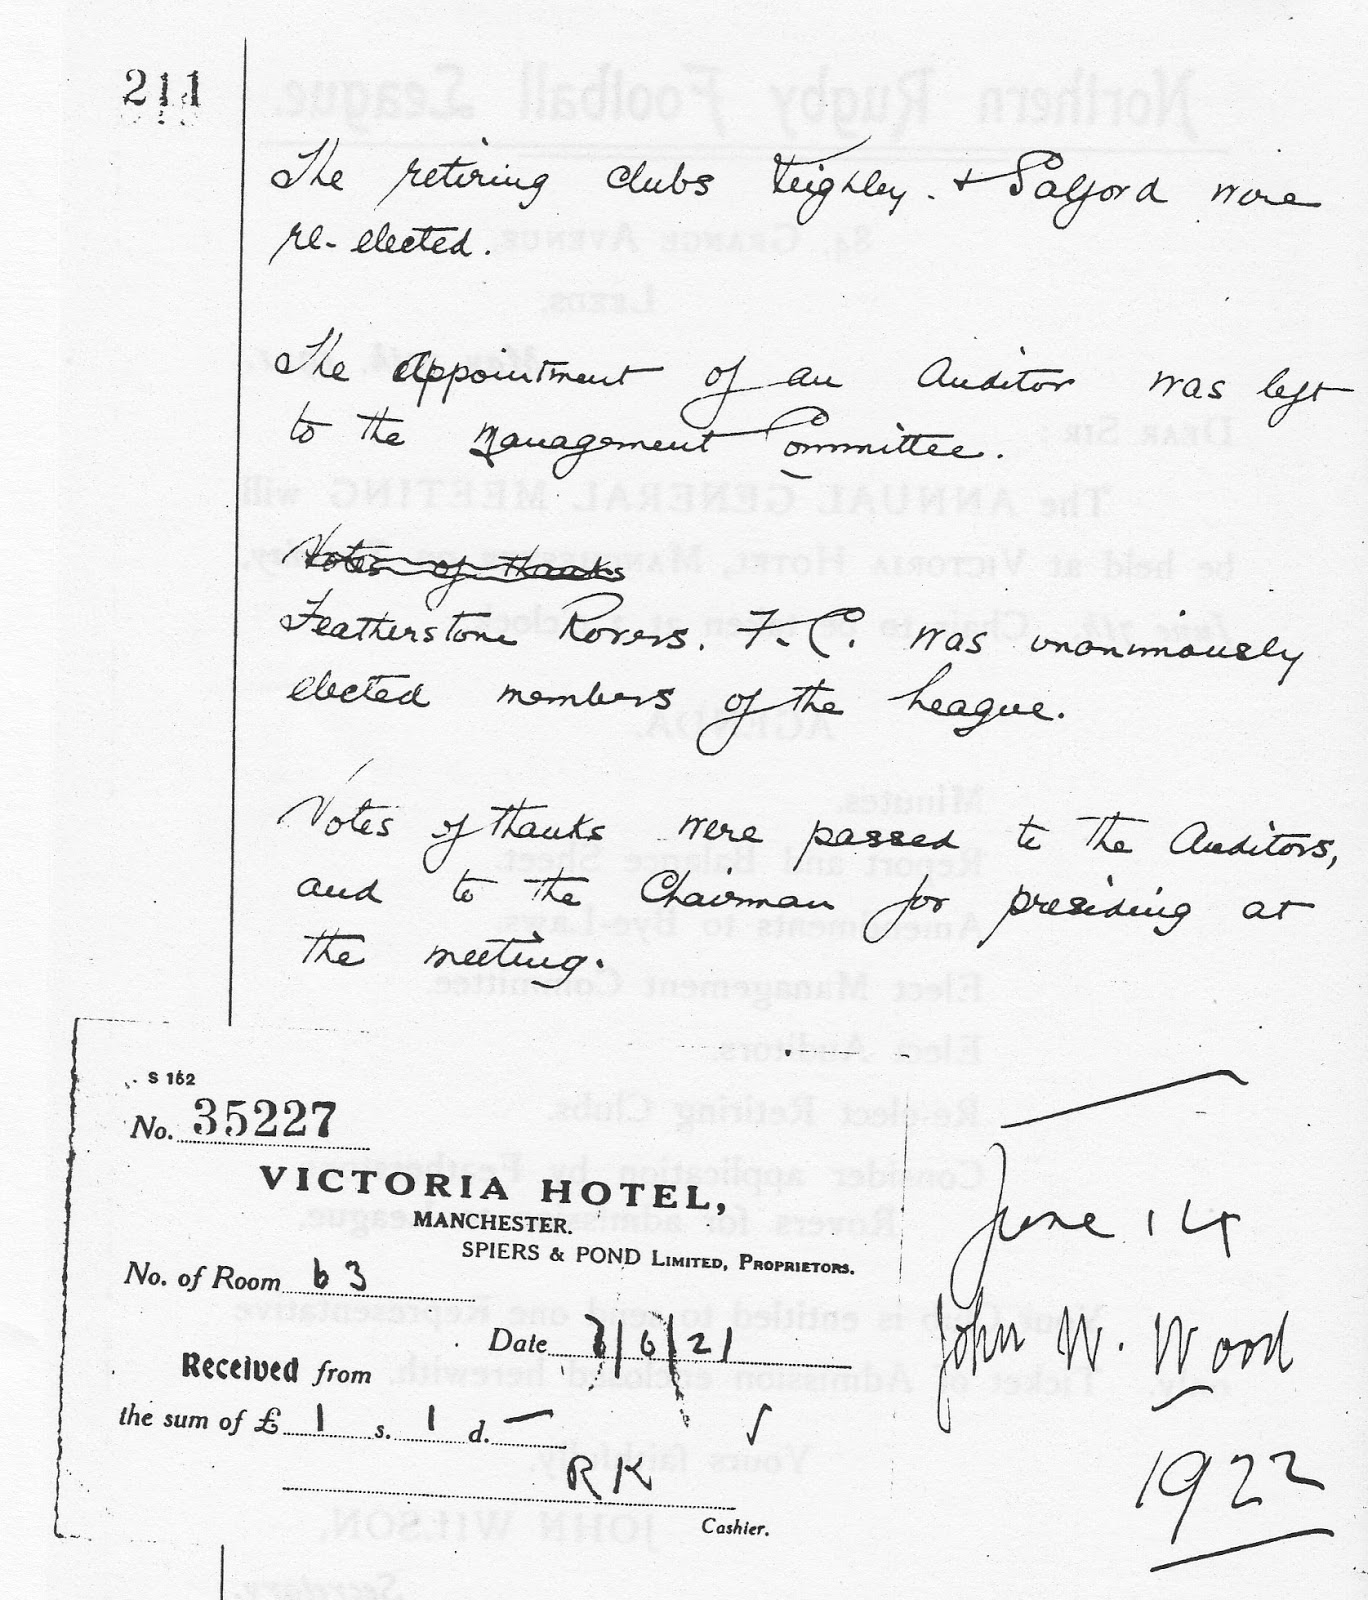 211
The retiring clubs Keighley. & Salford were
re-elected.
The appointment of an Auditor was left
to the Management Committee.
Votes of thanks
Featherstone Rovers. F.C. was unanimously
elected members of the League.
Votes of thanks were passed to the Auditors,
and to the Chairman for presiding at
the meeting.
S 162
No. 35227
VICTORIA HOTEL,
MANCHESTER.
SPIERS & POND LIMITED, PROPRIETORS.
No. of Room 63
Date 7/6/21
Received from
the sum of £ 1 s. 1 d. —
RK
Cashier.
June 14
John W. Wood
1922
Northern Rugby Football League.
84, GRANGE AVENUE,
LEEDS.
DEAR SIR:
The ANNUAL GENERAL MEETING will
be held at VICTORIA HOTEL, MANCHESTER
June 7th. Chair to be taken at o'clock
AGENDA.
Minutes.
Report and Balance Sheet.
Amendments to Bye-Laws.
Elect Management Committee.
Elect Auditors.
Re-elect Retiring Clubs.
Consider application by Feather
Rovers for admission to League.
Your Club is entitled to send one Representative
only. Ticket of Admission enclosed herewith.
Yours faithfully,
JOHN WILSON,
Secretary.